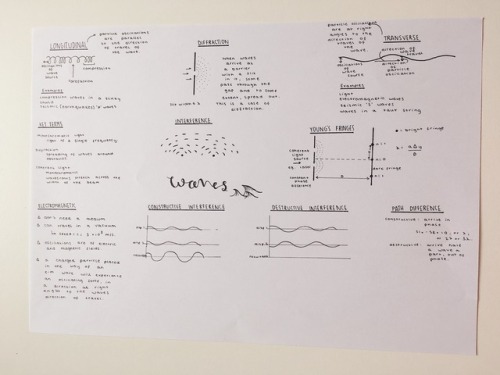 LONGITUDINAL
particle oscillations
are parallel
to the direction
of travel of
the wave
oscillations
of
wave
source
compression
rarefaction
Examples
compression waves in a slinky
sound
DIFFRACTION
when waves
arrive at
a barrier
with a slit
in it some
pass through the
gap and to some
extent spread out.
this is a case of
diffraction
TRANSVERSE
particle oscillations
are at right
angles to the
direction of
travel of the
wave.
direction of
wave
oscillations
of wave
source
direction of
particle
oscillations
Examples
light
electromagnetic waves
seismic 'S' waves
waves in a taut string
KEY TERMS
Monochromatic light
light of a single frequency
Diffraction
spreading of waves around
obstacles
Coherent light
Monochromatic
wavefronts stretch across the
width of the beam
INTERFERENCE
waves
YOUNG'S FRINGES
coherent light
source
constant phase
difference
= bright fringe
dark fringe
ELECTROMAGNETIC
1. don't need a medium
2. can travel in a vacuum
3. oscillations are of electric
and magnetic fields
4. a charged particle placed
in the way of an
e.m wave will experience
an oscillating force, in
a direction at right
angles to the waves
direction of travel.
CONSTRUCTIVE INTERFERENCE
wave 1
wave 2
resultant
DESTRUCTIVE INTERFERENCE
wave 1
wave 2
PATH DIFFERENCE
constructive : arrive in
phase
destructive: